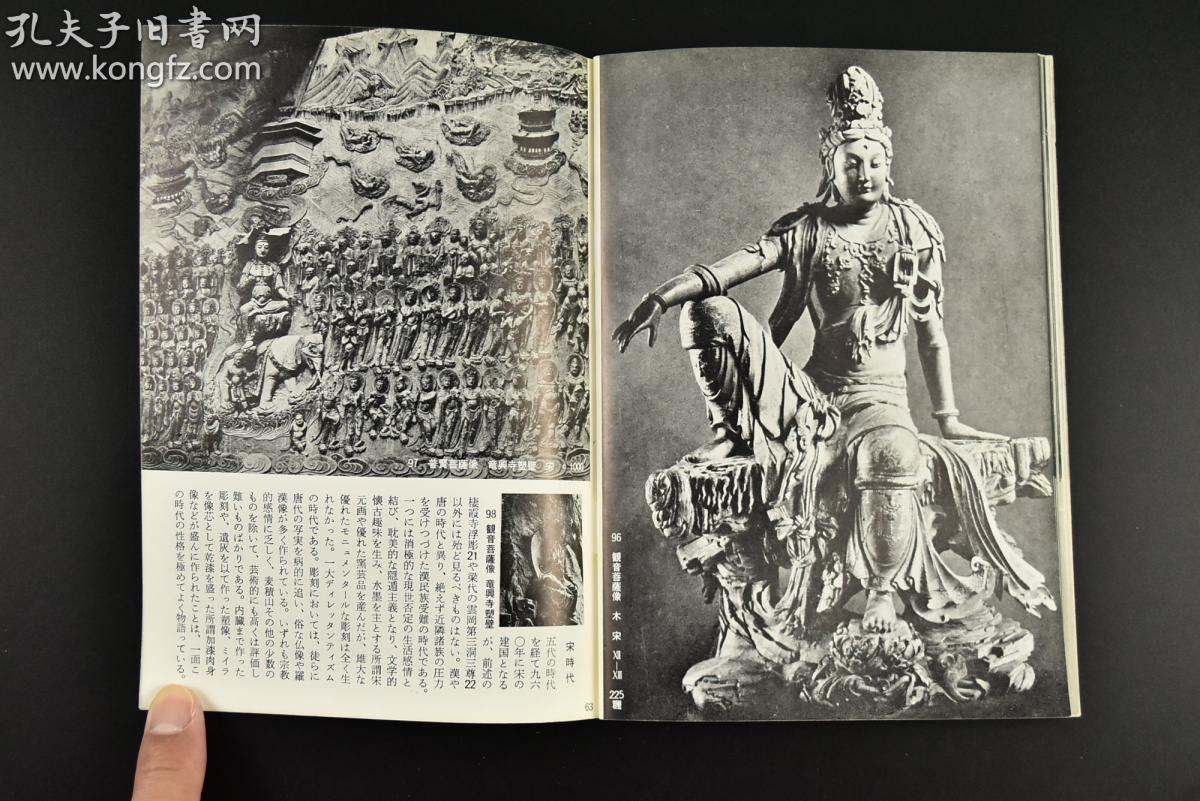 孔夫子旧书网
www.kongfz.com
97 普賢菩薩像 竜興寺塑壁 宋 c.1000
98 観音菩薩像 竜興寺塑壁
宋時代
五代の時代
を経て九六
〇年に宋の
建国となる
が、前述の
棲霞寺浮彫21や梁代の雲岡第三洞三尊22
以外には殆ど見るべきものはない。漢や
唐の時代と異り、絶えず近隣諸族の圧力
を受けつづけた漢民族受難の時代である。
一つには消極的な現世否定の生活感情と
結び、耽美的な隠遁主義となり、文学的
懐古趣味を生み、水墨を主とする所謂宋
元画や優れた窯芸品を産んだが、雄大な
優れたモニュメンタールな彫刻は全く生
れなかった。一大ディレッタンティズム
の時代である。彫刻においては、徒らに
唐代の写実を病的に追い、俗な仏像や羅
漢像が多く作られている。いずれも宗教
的感情に乏しく、麦積山その他の少数の
ものを除いて、芸術的にも高くは評価し
難いものばかりである。内臓まで作った
彫刻や、遺灰を以て作った塑像、ミイラ
を像芯として乾漆を盛った所謂加漆肉身
像などが盛んに作られたことは、一面こ
の時代の性格を極めてよく物語っている。
63
96 観音菩薩像 木 宋 XII—XIII 225糎